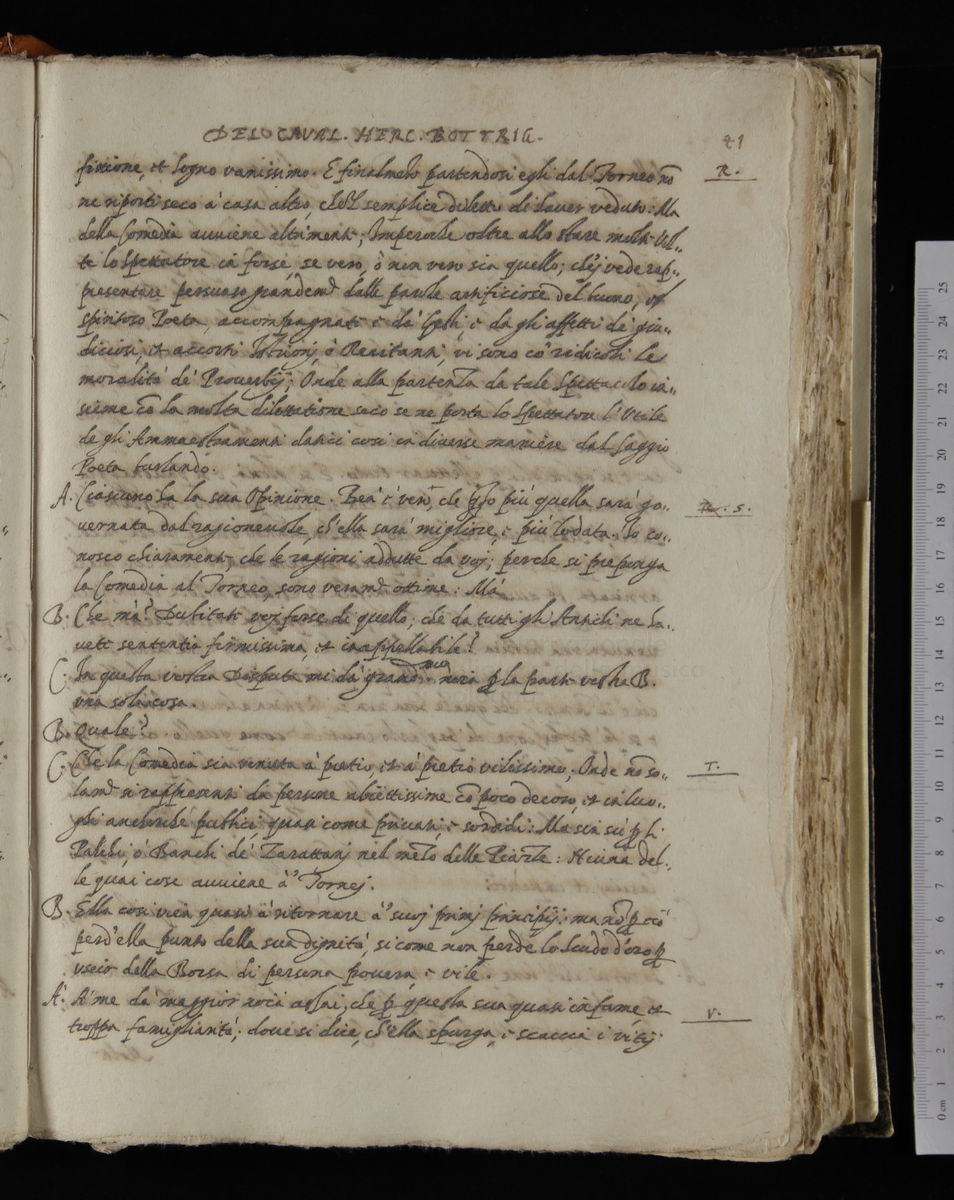 DELO CAVAL. HERC. BOTTRIG.
21
fintione, et sogno vanissimo. E finalmẽte partendosi egli dal Torneo nõ
R.
ne riporti seco à casa altro, che'l semplice diletto di hauer veduto: Ma
della Comedia auuiene altrimenti; Imperoche oltre allo stare molte vol-
te lo Spettatore in forse, se vero, ò non vero sia quello; ch'ei vede rap-
presentare persuaso grandem.e dalle parole artificiose del buono, et
spiritoso Poeta, accompagnate e da' gesti, e da gli affetti de' giu-
diciosi, et accorti Istrionj, ò Recitanti, vi sono co' ridicoli le
moralità de' Prouerbij; Onde alla partenza da tale Spettacolo in-
sieme cõ la molta dilettatione seco se ne porta lo Spettatore l'Vtile
de gli Ammaestramenti datici cosi in diverse maniere dal saggio
Poeta burlando.
A. Ciascuno ha la sua Opinione. Ben è vero, che q̃to più quella sarà go-
S.
uernata dal ragioneuole, ch'ella sarà migliore, e più lodata. Io co-
nosco chiaramente che le ragioni addutte da voj, perche si preponga
la Comedia al Torneo, sono veram.e ottime: Mà
B. Che mà? Dubitate voj forse di quello; che da tutti gli Antichi ne ha-
uete sententia firmissima, et inappellabile?
C. In questa vostra Disputa mi dà grande noia p la parte vostra B.
vna sola cosa.
B. Quale?
C. Che la Comedia sia venuta à pretio, et à pretio vilissimo; Onde nõ so-
T.
lam.e si rappresenti da persone abiettissime cõ poco decoro, et in luo-
ghi anchorche publici, quasi come priuati, e sordidi: Ma sia sù p li
Palchi ò Banchi de' Zarattanj nel mezo delle Piazze: Niuna del-
le quai cose auuiene à' Tornej.
B. Ella cosi vien quasi à ritornare à' suoj primj principij: ma nõ p ciò
perd'ella punto della sua dignità, si come non perde lo Scudo d'oro p
vscir della Borsa di persona pouera, e vile.
A. A' me dà maggior noia assai, che p questa sua quasi infame, et
V.
troppa famigliarità; doue si dice, ch'ella spurga, e scaccia i vitij